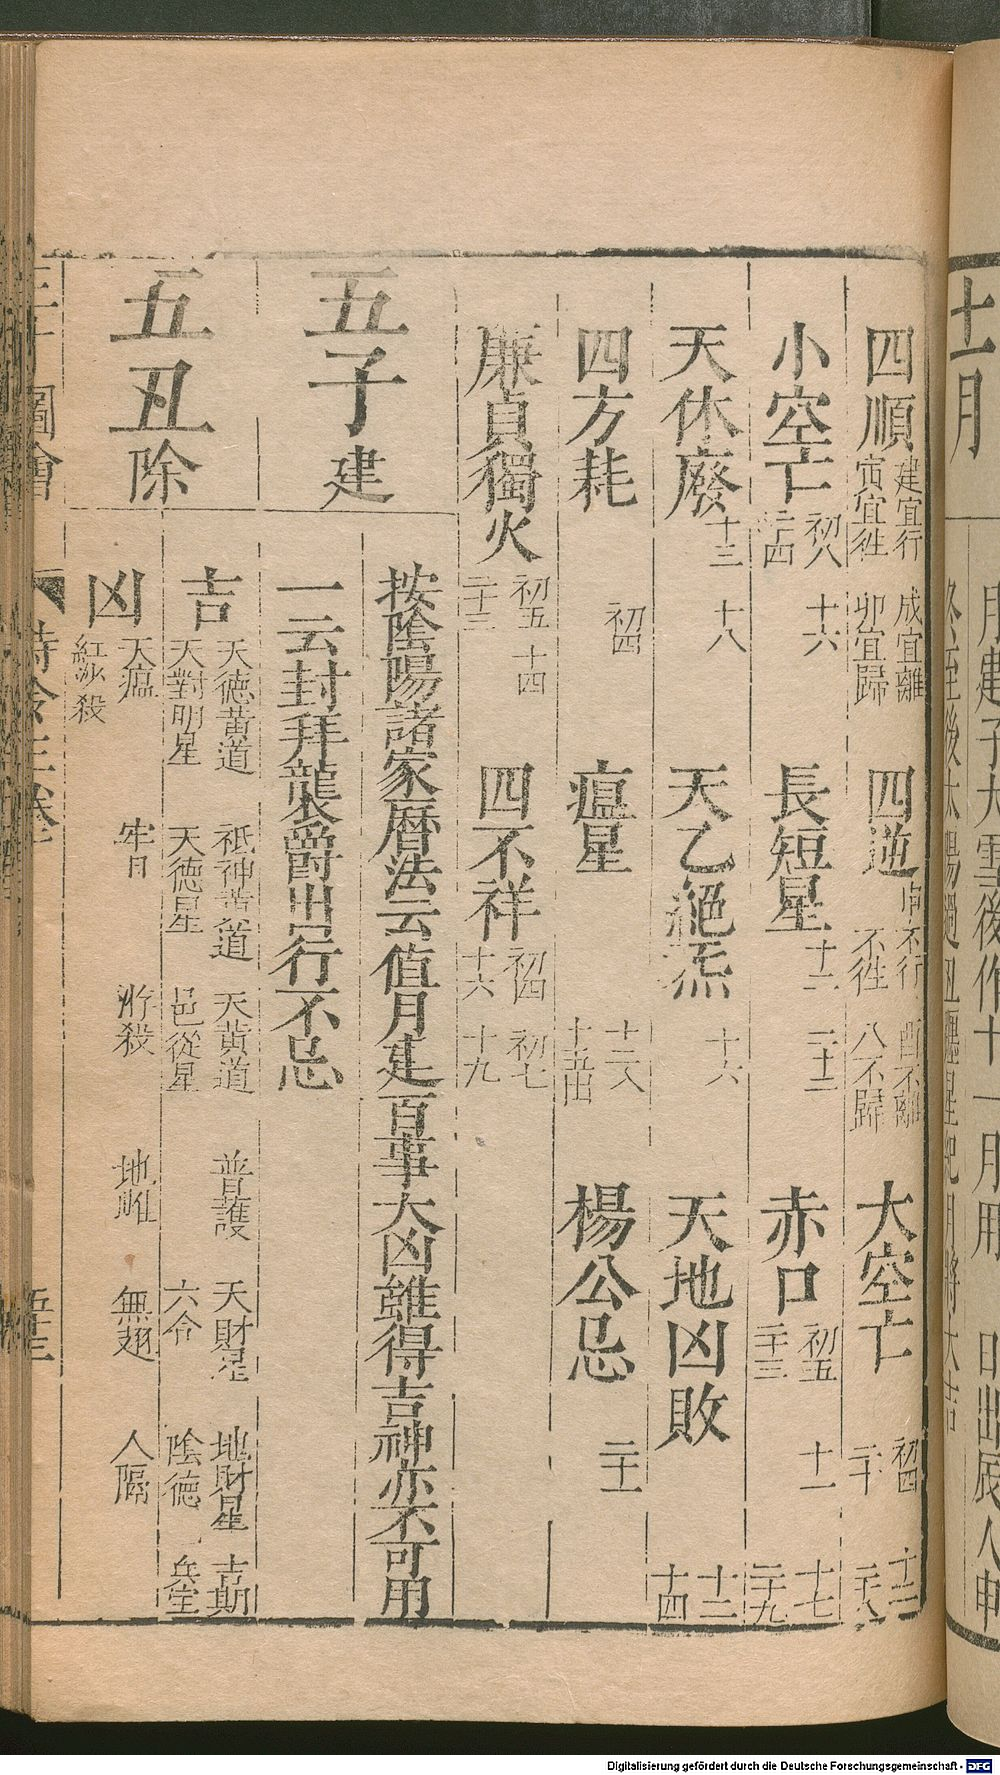 十一月
四順 建宜行 寅宜徃 成宜離 卯宜歸 四逆 申不行 不徃 酉不離 八不歸 大空亡 初四 二十 十二 二十八
小空亡 初八 二十四 十六 長短星 十二 二十二 赤口 初五 二十三 十一 十七 二十九
天休廢 十三 十八 天乙絕炁 十六 天地凶敗 十二 十四
四方耗 初四 瘟星 楊公忌 二十一
廉貞獨火 初五 二十三 十四 四不祥 初四 十六 初七 十九
五子建
按陰陽諸家曆法云值月建百事大凶雖得吉神亦不可用
一云封拜襲爵出行不忌
五丑除
吉 天德黃道 天對明星 祇神黃道 天德星 天黃道 邑從星 普護 天財星 六合 地財星 陰德 吉期 兵宝
凶 天瘟 紅紗殺 牢日 殺 地雌 無翹 人隔
三才圖會
時令三卷
Digitalisierung gefördert durch die Deutsche Forschungsgemeinschaft - DFG